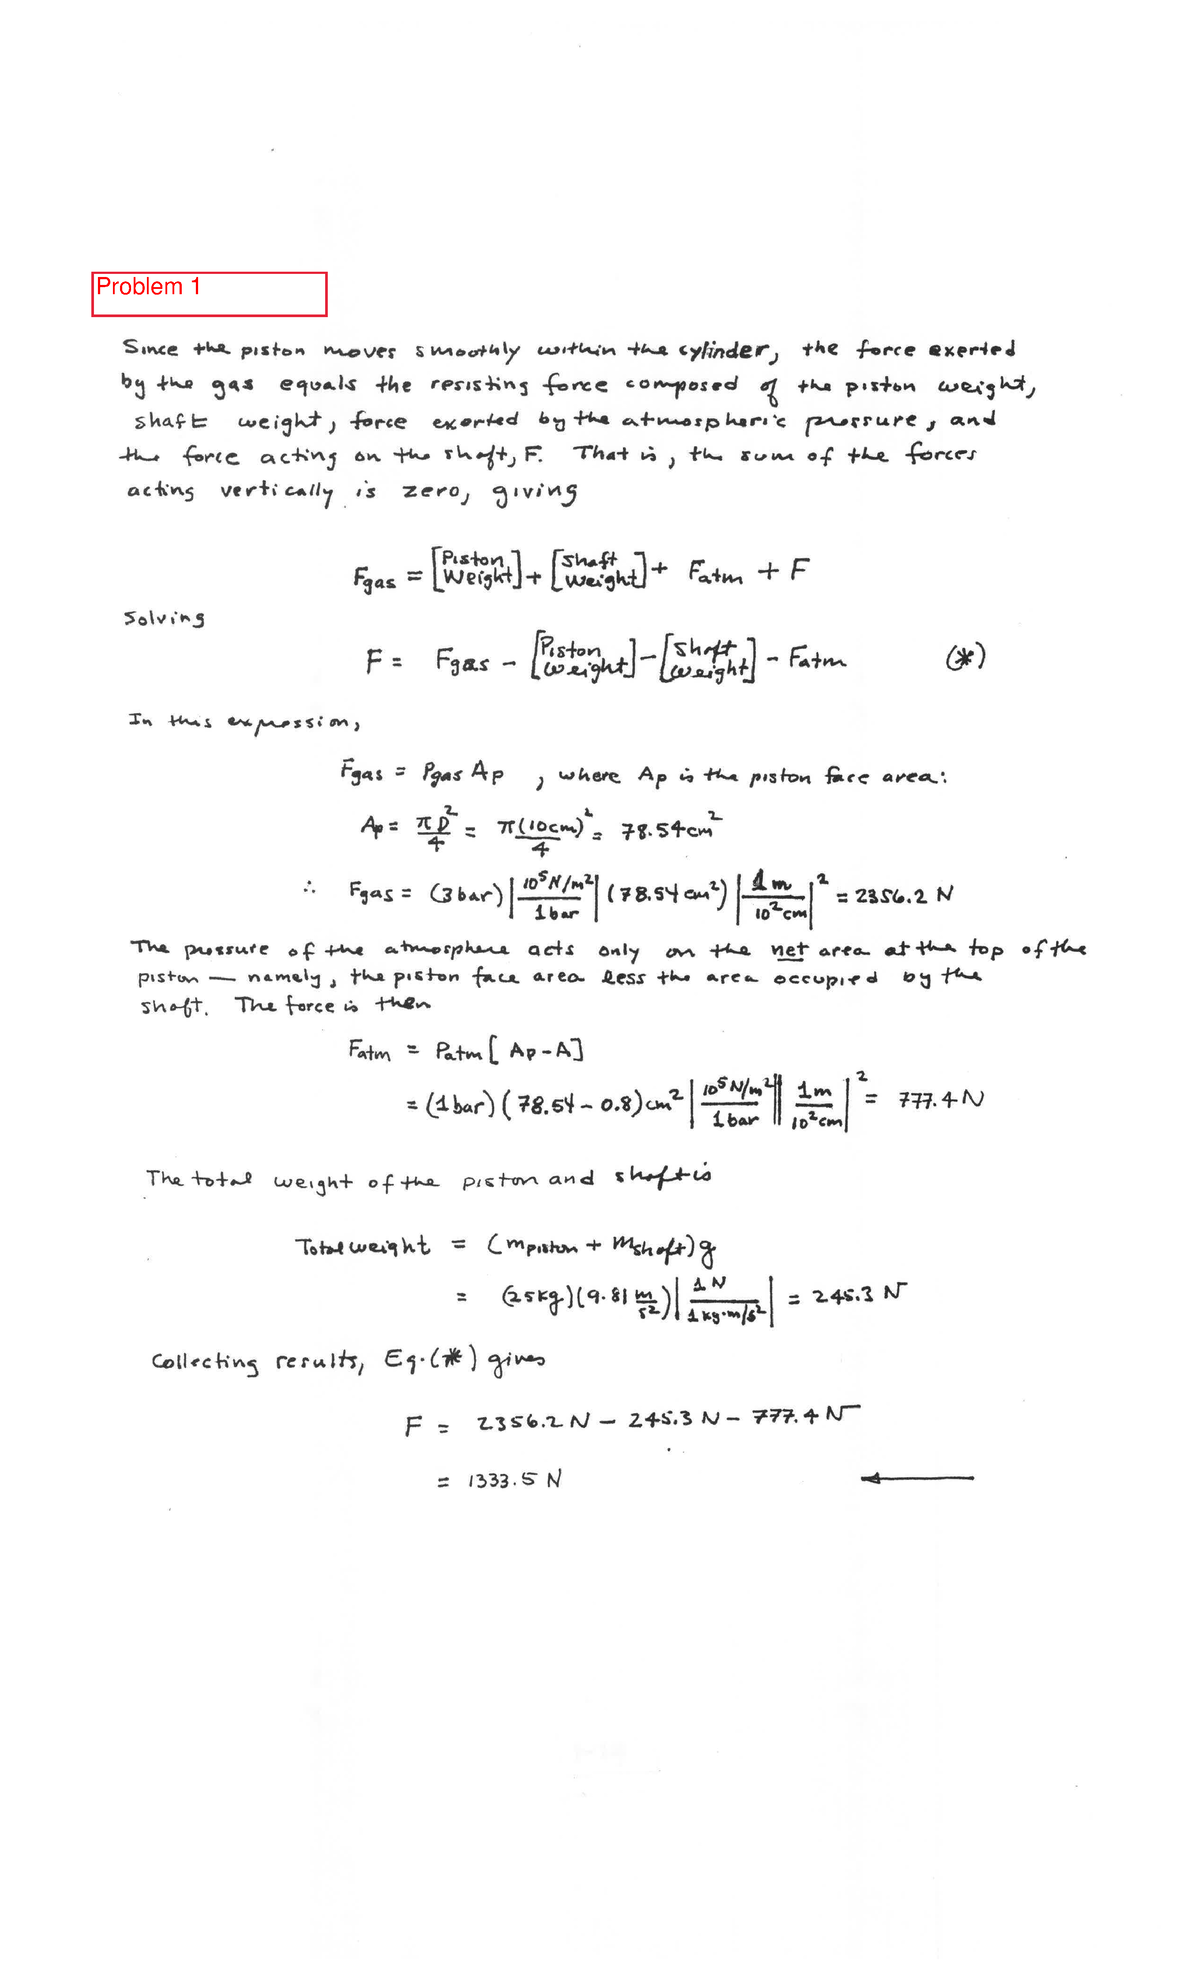 Problem 1
Since the piston moves smoothly within the cylinder, the force exerted
by the gas equals the resisting force composed of the piston weight,
shaft weight, force exerted by the atmospheric pressure, and
the force acting on the shaft, F. That is, the sum of the forces
acting vertically is zero, giving
Fgas = [Piston Weight] + [Shaft Weight] + Fatm + F
Solving
F = Fgas - [Piston Weight] - [Shaft Weight] - Fatm (*)
In this expression,
Fgas = Pgas Ap , where Ap is the piston face area:
Ap = πD²/4 = π(10cm)²/4 = 78.54cm²
∴ Fgas = (3bar) |10⁵N/m²/1bar| (78.54 cm²) |1m/10²cm|² = 2356.2 N
The pressure of the atmosphere acts only on the net area at the top of the
piston — namely, the piston face area less the area occupied by the
shaft. The force is then
Fatm = Patm [Ap - A]
= (1bar) (78.54 - 0.8) cm² |10⁵N/m²/1bar| |1m/10²cm|² = 777.4 N
The total weight of the piston and shaft is
Total weight = (mpiston + mshaft) g
= (25kg)(9.81 m/s²) |1N/1kg·m/s²| = 245.3 N
Collecting results, Eq.(*) gives
F = 2356.2 N - 245.3 N - 777.4 N
= 1333.5 N